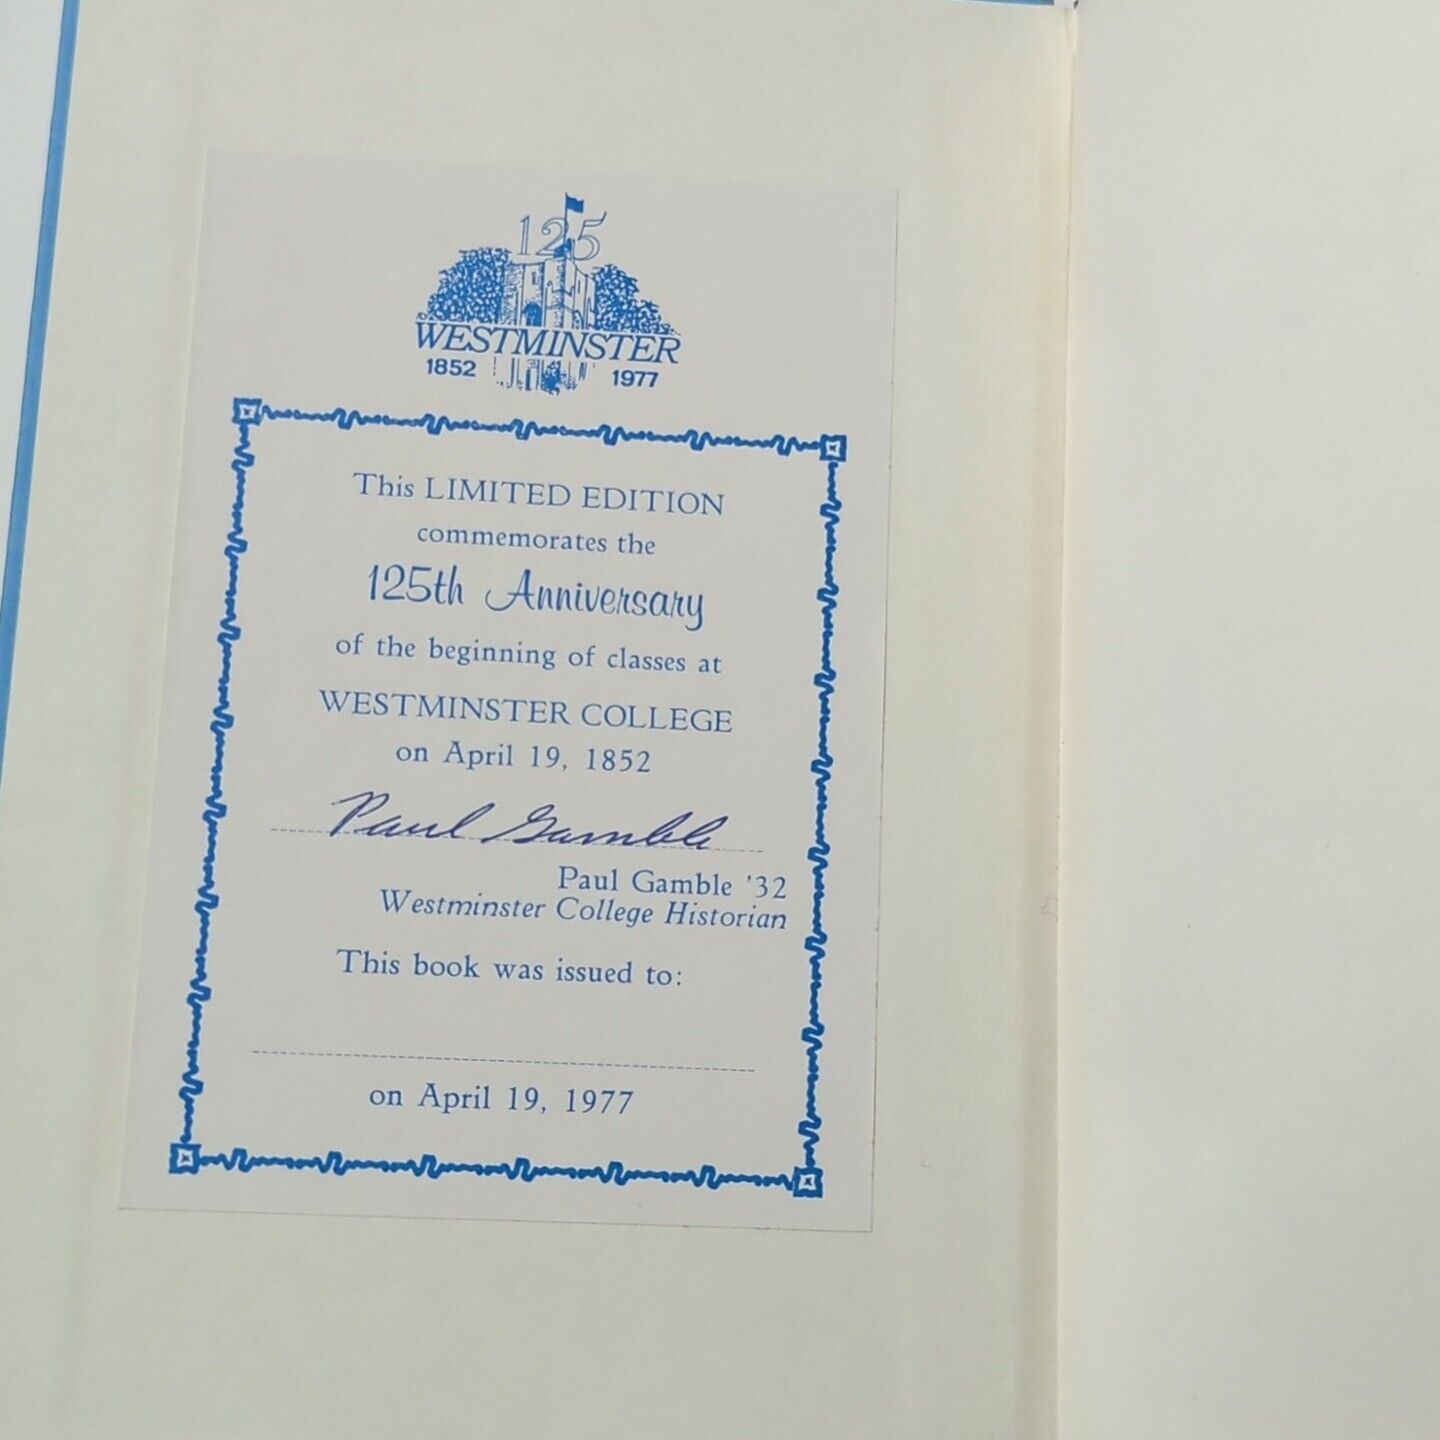 125
WESTMINSTER
1852 1977
This LIMITED EDITION
commemorates the
125th Anniversary
of the beginning of classes at
WESTMINSTER COLLEGE
on April 19, 1852
Paul Gamble
Paul Gamble '32
Westminster College Historian
This book was issued to:
on April 19, 1977